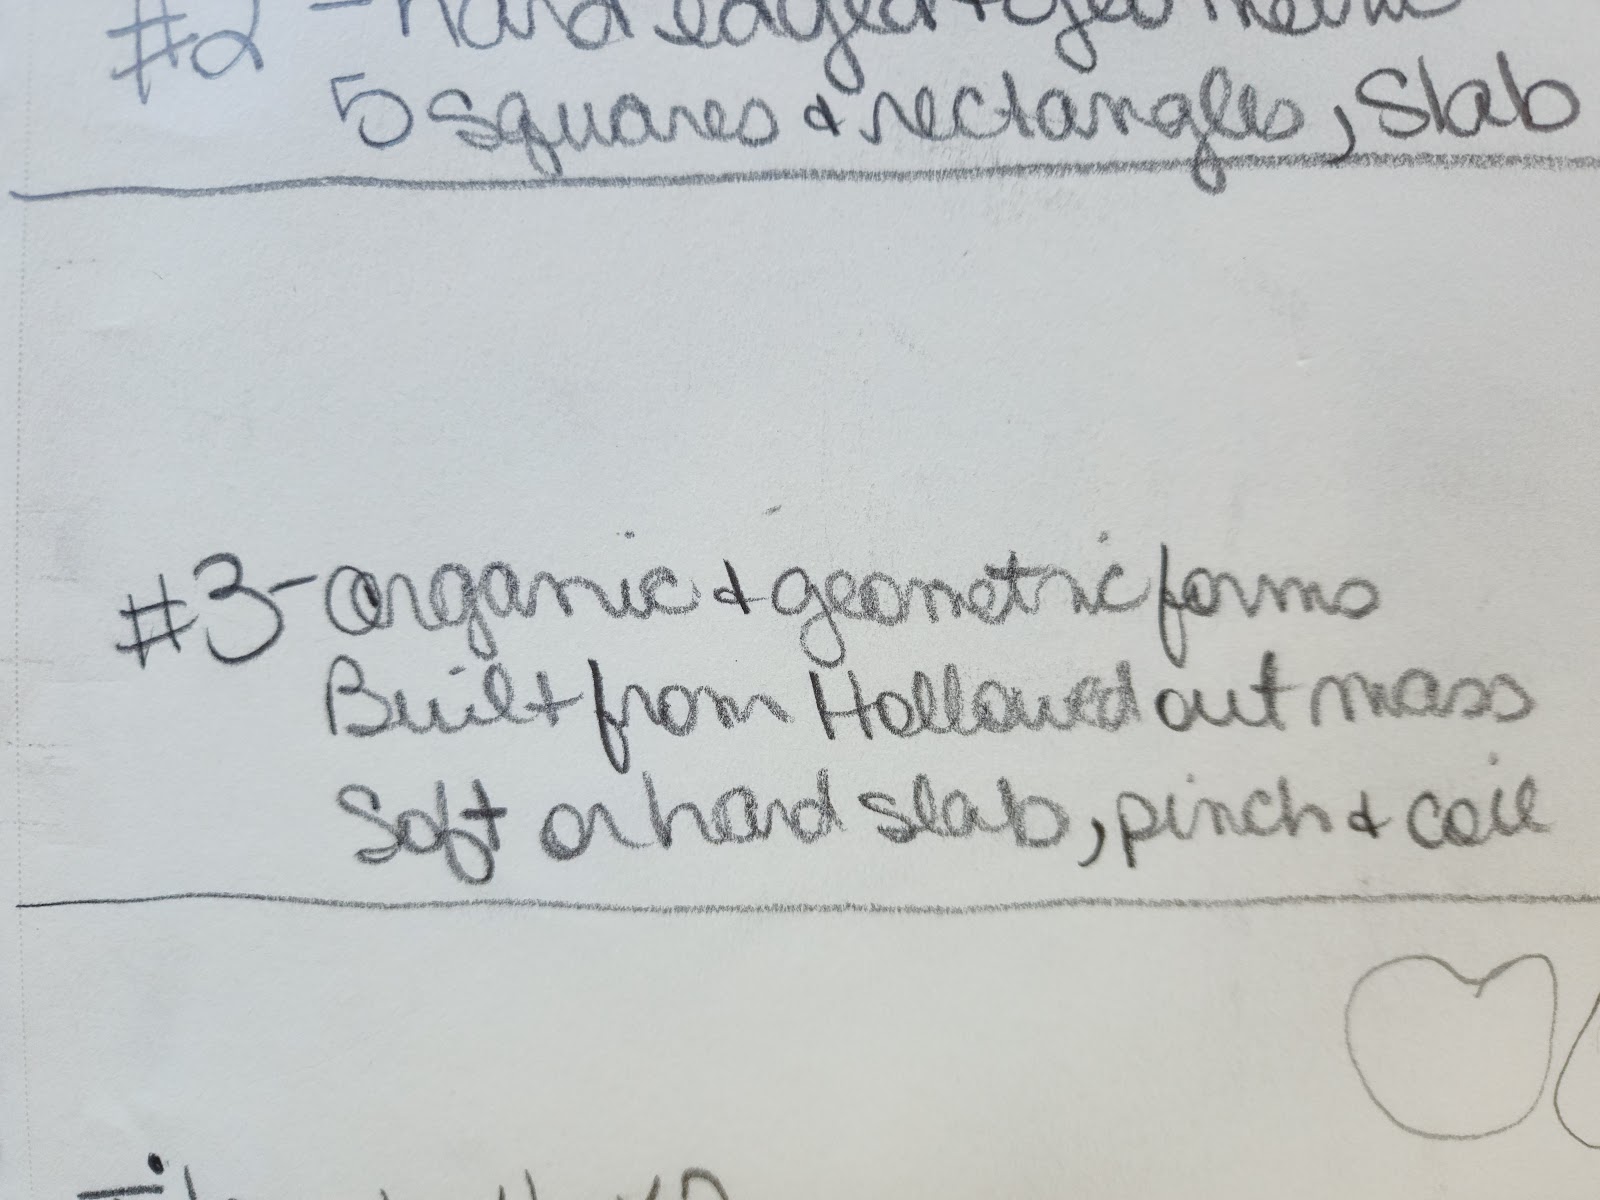 #2 - hard edged + geometric
5 squares & rectangles, Slab
#3 - organic & geometric forms
Built from Hollowed out mass
Soft or hard slab, pinch & coil